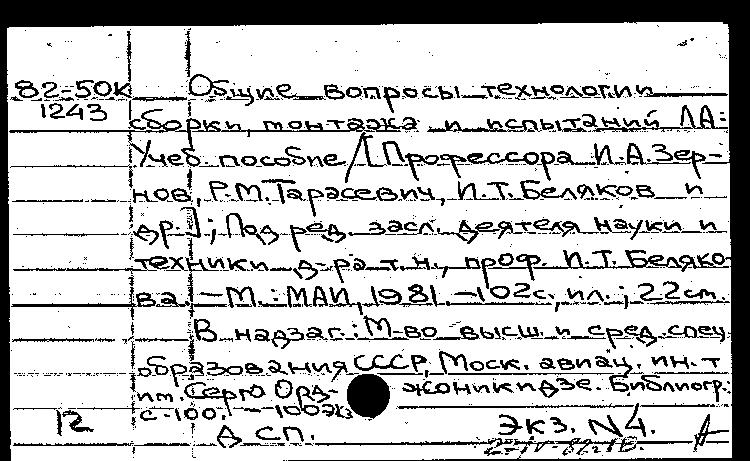 82-50К Общие вопросы технологии
1243 сборки, монтажа и испытаний ЛА:
Учеб. пособие /[Профессора И.А.Зер-
нов, Р.М.Тарасевич, И.Т.Беляков и
др.]; Под ред. засл. деятеля науки и
техники д-ра т.н., проф. И.Т. Беляко-
ва. —М.: МАИ, 1981. —102с., ил.; 22см.
В надзаг.: М-во высш. и сред. спец.
образования СССР, Моск. авиац. ин-т
им. Серго Орд- жоникидзе. Библиогр.:
с.100. —100экз
12 Д СП. Экз. N4. А